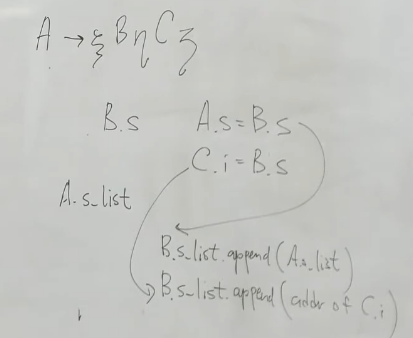 A → ξ B η C ζ
B.s A.s = B.s
C.i = B.s
A.s_list
B.s_list.append(A.s_list)
B.s_list.append(addr of C.i)